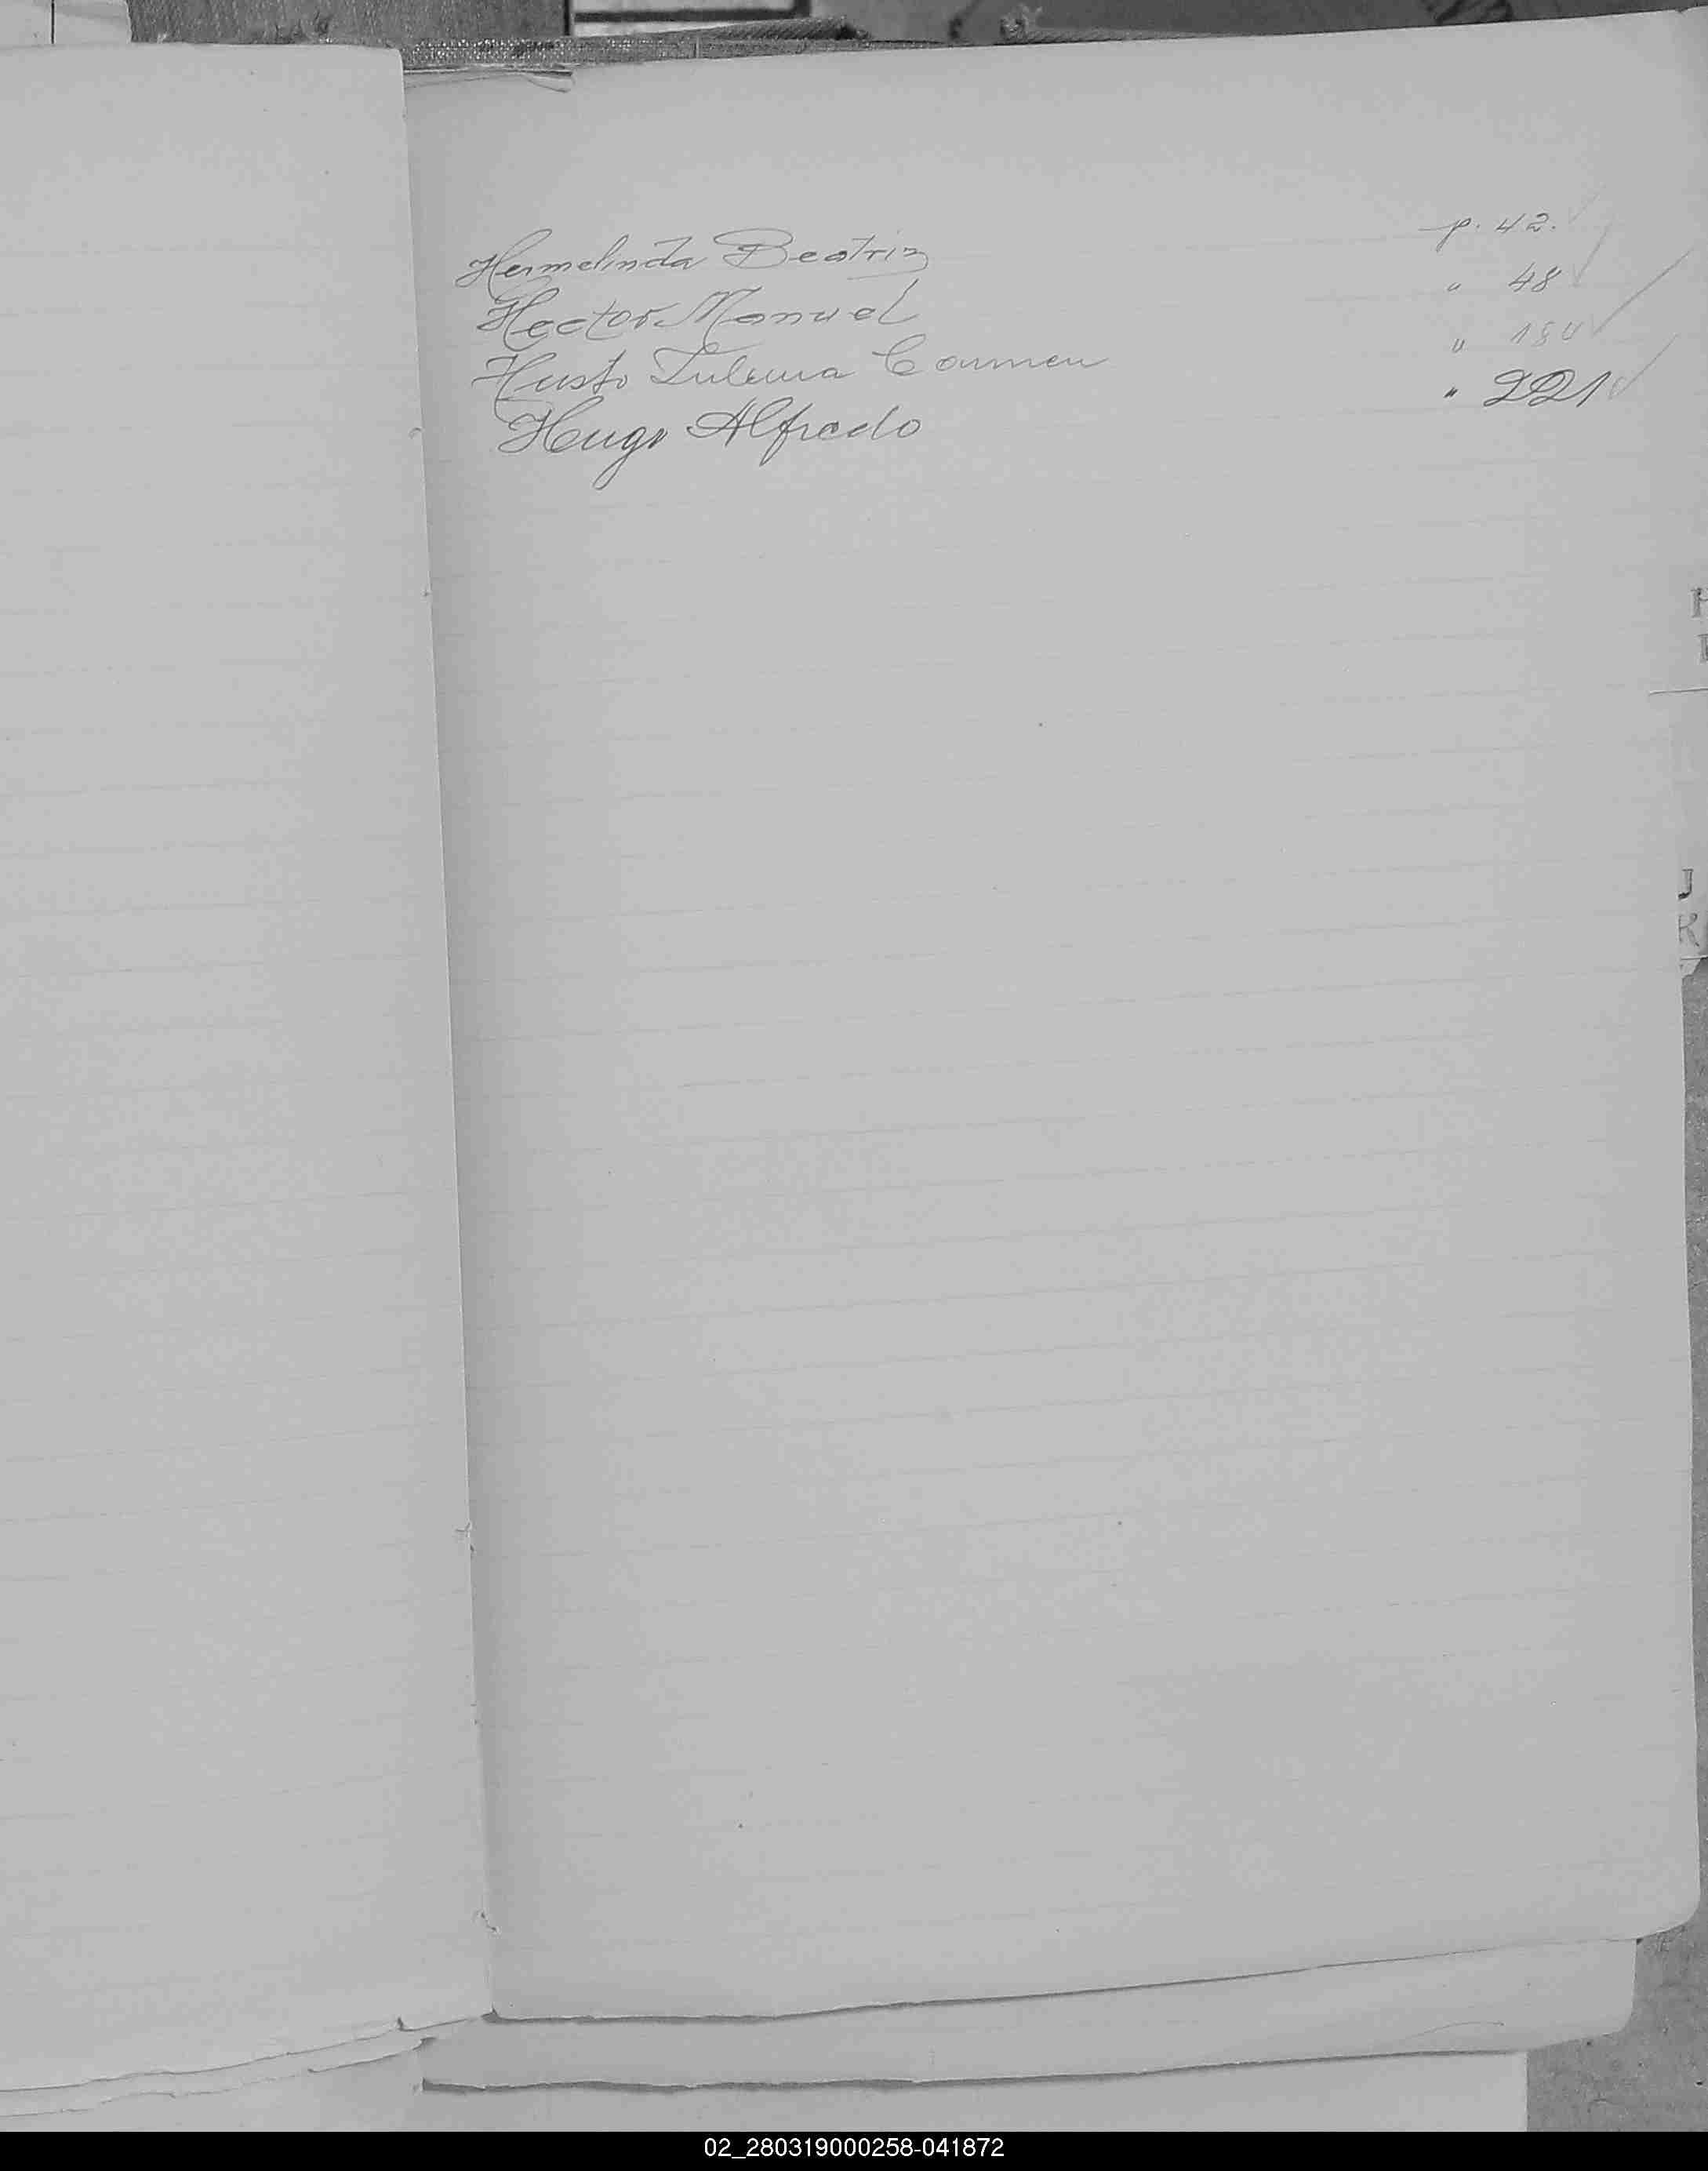 Hermelinda Beatriz p. 42.
Hector Manuel " 48
Husto Zulema Carmen " 180
Hugo Alfredo " 221
J
K
02_280319000258-041872